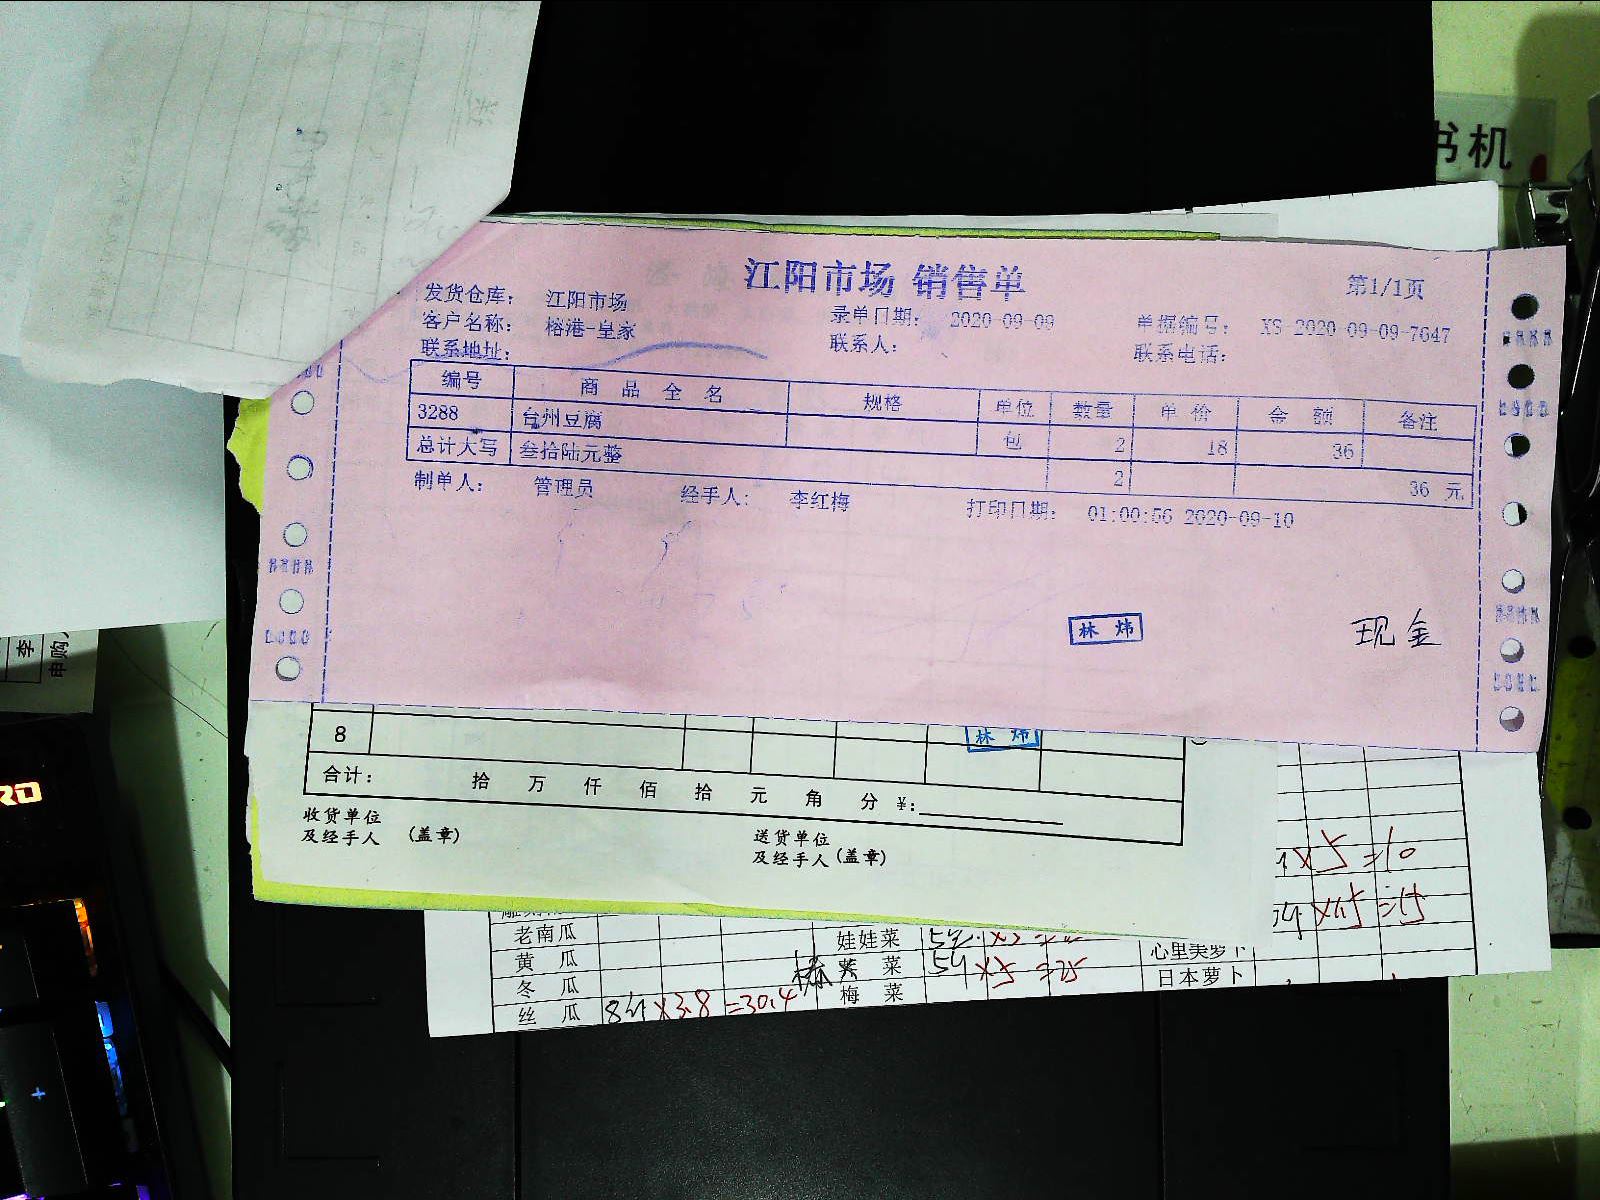 书机
江阳市场 销售单
第1/1页
发货仓库： 江阳市场
录单日期： 2020-09-09
单据编号： XS-2020-09-09-7647
客户名称： 榕港-皇家
联系人：
联系电话：
联系地址：
编号 商品全名 规格 单位 数量 单价 金额 备注
3288 台州豆腐 包 2 18 36
总计大写 叁拾陆元整 2 36 元
制单人： 管理员 经手人： 李红梅 打印日期： 01:00:56 2020-09-10
林炜
现金
8
林炜
合计： 拾 万 仟 佰 拾 元 角 分 ¥：
收货单位
及经手人 （盖章）
送货单位
及经手人（盖章）
李
申购
RD
×5=10
×15=15
老南瓜 娃娃菜 心里美萝卜
黄瓜 菜 ×5=25 日本萝卜
冬瓜 梅菜
丝瓜 8斤×3.8=30.4